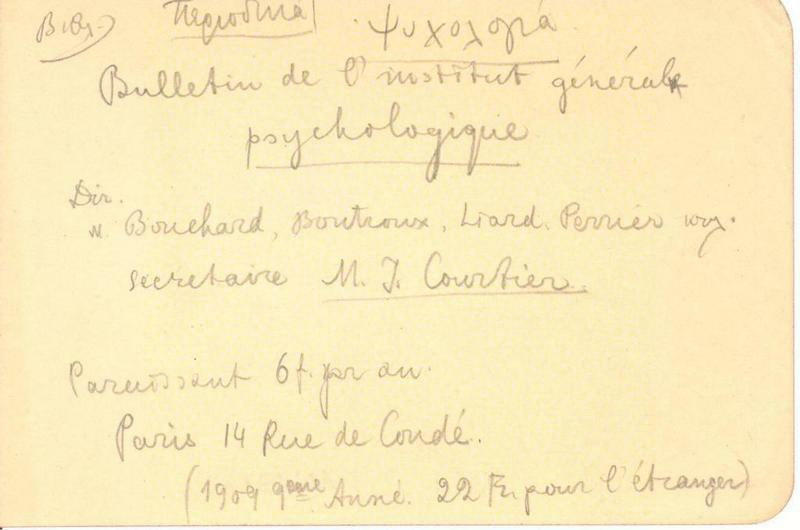 Περιοδικά Ψυχολογία
Bulletin de l'institut général
psychologique
Dir.
M. Bouchard, Boutroux, Liard, Perrier
secretaire M. J. Courtier.
Paraissant 6 f. pr an.
Paris 14 Rue de Condé.
(1909 9ème Anné. 22 Fr. pour l'étranger)